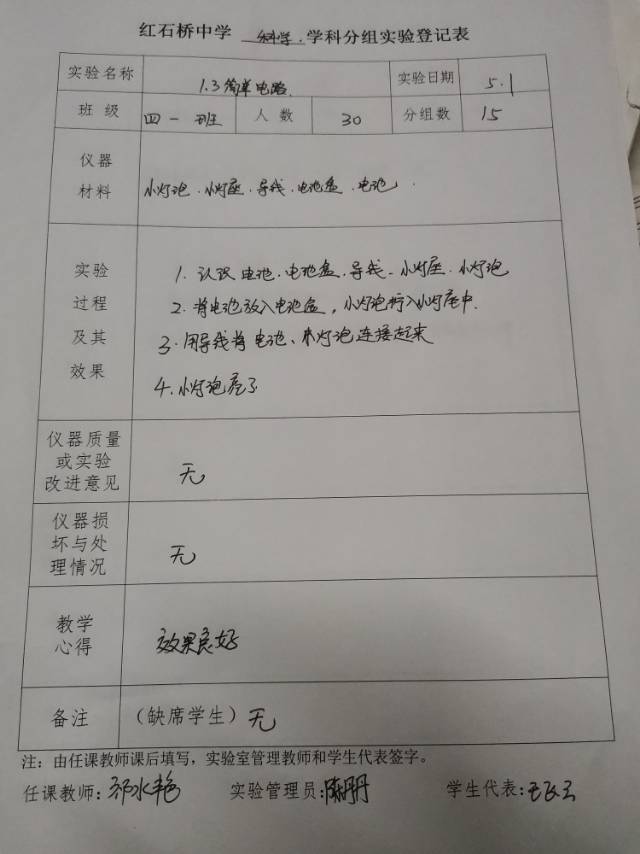 红石桥中学 科学 学科分组实验登记表
实验名称 1.3简单电路 实验日期 5.1
班 级 四一班 人 数 30 分组数 15
仪器
材料 小灯泡、小灯座、导线、电池盒、电池
实验
过程
及其
效果
1. 认识电池、电池盒、导线、小灯座、小灯泡
2. 将电池放入电池盒,小灯泡拧入小灯座中.
3. 用导线将电池、小灯泡连接起来
4. 小灯泡亮了
仪器质量
或实验
改进意见 无
仪器损
坏与处
理情况 无
教学
心得 效果良好
备注 (缺席学生)无
注:由任课教师课后填写,实验室管理教师和学生代表签字。
任课教师:祁水艳 实验管理员: 学生代表: